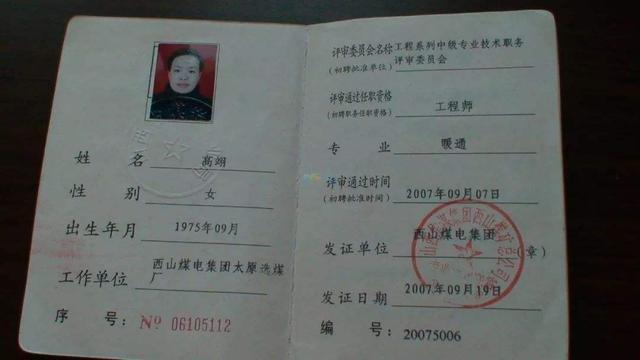 姓名 高翊
性别 女
出生年月 1975年09月
工作单位 西山煤电集团太原选煤
厂
序号: № 06105112
评审委员会名称 工程系列中级专业技术职务
(初聘批准单位) 评审委员会
评审通过任职资格
(初聘职务任职资格) 工程师
专业 暖通
评审通过时间
(初聘批准时间) 2007年09月07日
发证单位 西山煤电集团 (章)
发证日期 2007年09月19日
编号: 20075006